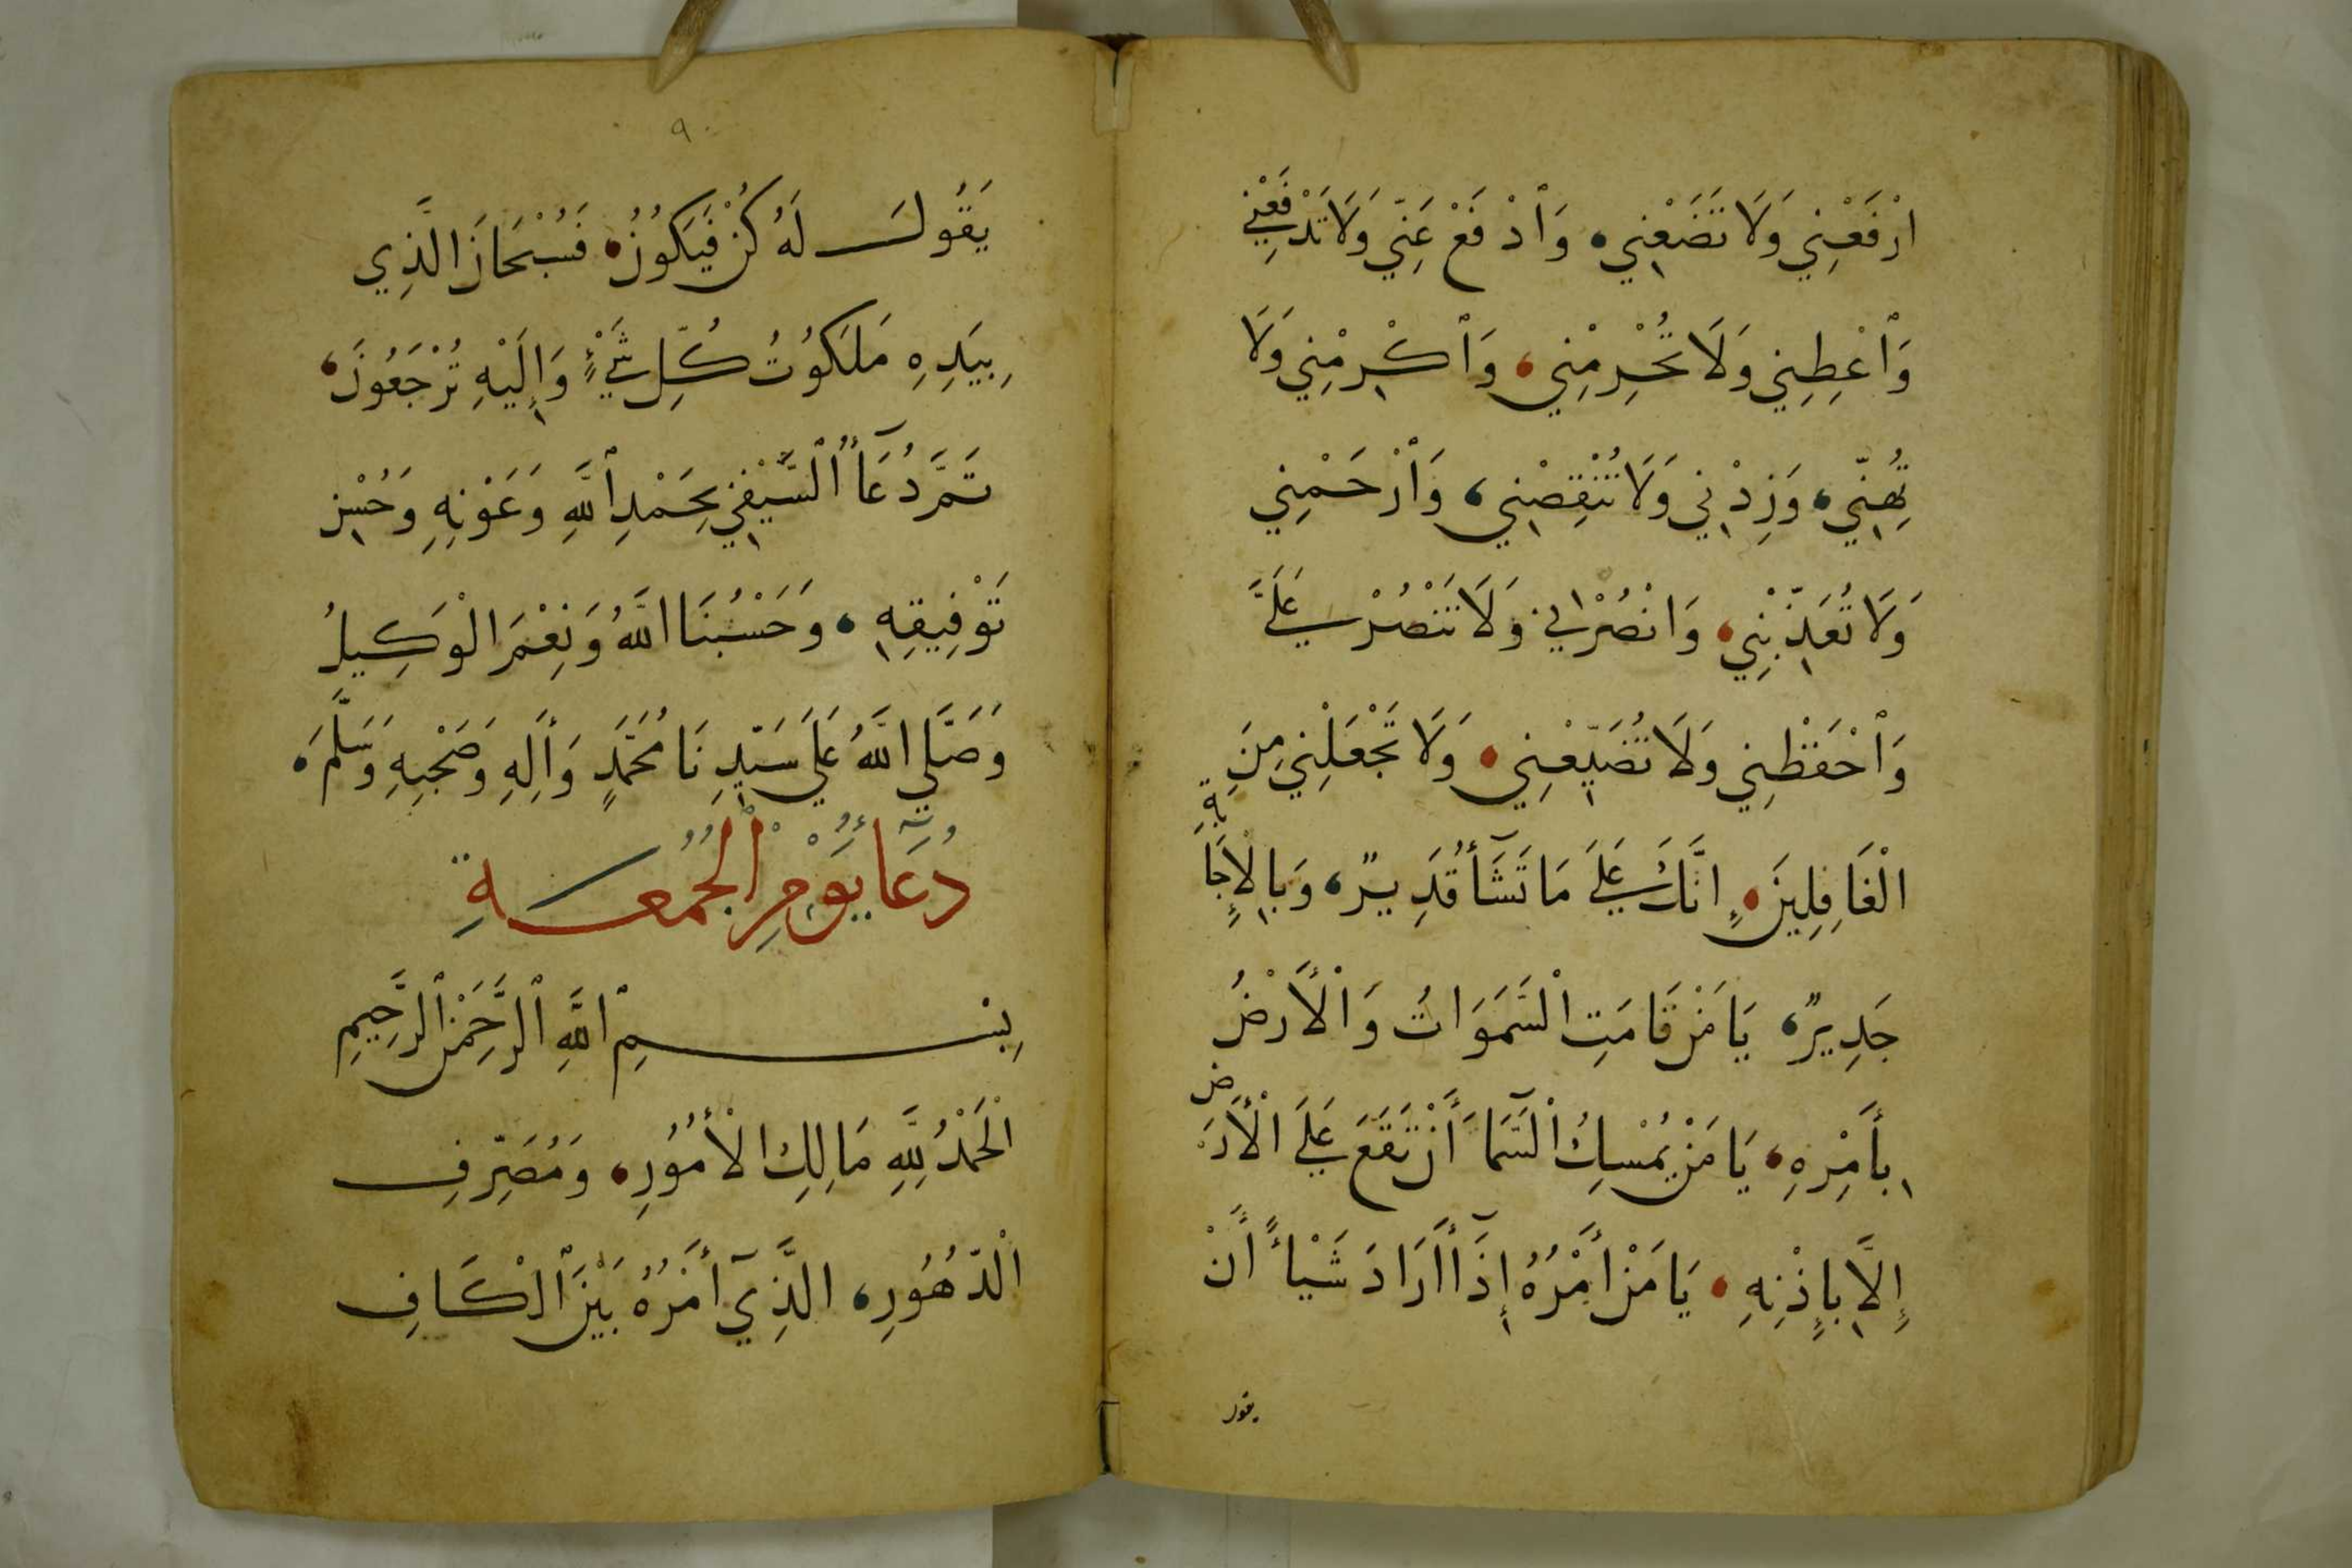 ارْفَعْنِي وَلَا تَضَعْنِي، وَٱدْفَعْ عَنِّي وَلَا تَدْفَعْنِي
وَٱعْطِنِي وَلَا تُحْرِمْنِي، وَٱكْرِمْنِي وَلَا
تُهِنِّي، وَزِدْنِي وَلَا تُنْقِصْنِي، وَٱرْحَمْنِي
وَلَا تُعَذِّبْنِي، وَانْصُرْنِي وَلَا تَنْصُرْ عَلَيَّ
وَٱحْفَظْنِي وَلَا تُضَيِّعْنِي، وَلَا تَجْعَلْنِي مِنَ
الْغَافِلِينَ، إِنَّكَ عَلَى مَا تَشَآأُ قَدِيرٌ، وَبِالْإِجَابَةِ
جَدِيرٌ، يَا مَنْ قَامَتِ السَّمَوَاتُ وَالْأَرْضُ
بِأَمْرِهِ، يَا مَنْ يُمْسِكُ السَّمَآ أَنْ تَقَعَ عَلَى الْأَرْضِ
إِلَّا بِإِذْنِهِ، يَا مَنْ أَمْرُهُ إِذَآ أَرَادَ شَيْأً أَنْ
يقول
٩٠
يَقُولَ لَهُ كُنْ فَيَكُونُ، فَسُبْحَانَ الَّذِي
بِيَدِهِ مَلَكُوتُ كُلِّ شَيْءٍ وَإِلَيْهِ تُرْجَعُونَ،
تَمَّ دُعَآأُ ٱلسَّيْفِي بِحَمْدِ ٱللَّهِ وَعَوْنِهِ وَحُسْنِ
تَوْفِيقِهِ، وَحَسْبُنَا اللَّهُ وَنِعْمَ الْوَكِيلُ
وَصَلَّى اللَّهُ عَلَى سَيِّدِنَا مُحَمَّدٍ وَأَلِهِ وَصَحْبِهِ وَسَلَّمَ،
دُعَآأُ يَوْمِ الْجُمُعَةِ
بِسْمِ ٱللَّهِ ٱلرَّحْمَنِ ٱلرَّحِيمِ
الْحَمْدُ لِلَّهِ مَالِكِ الْأُمُورِ، وَمُصَرِّفِ
الدُّهُورِ، الَّذِي أَمْرُهُ بَيْنَ ٱلْكَافِ